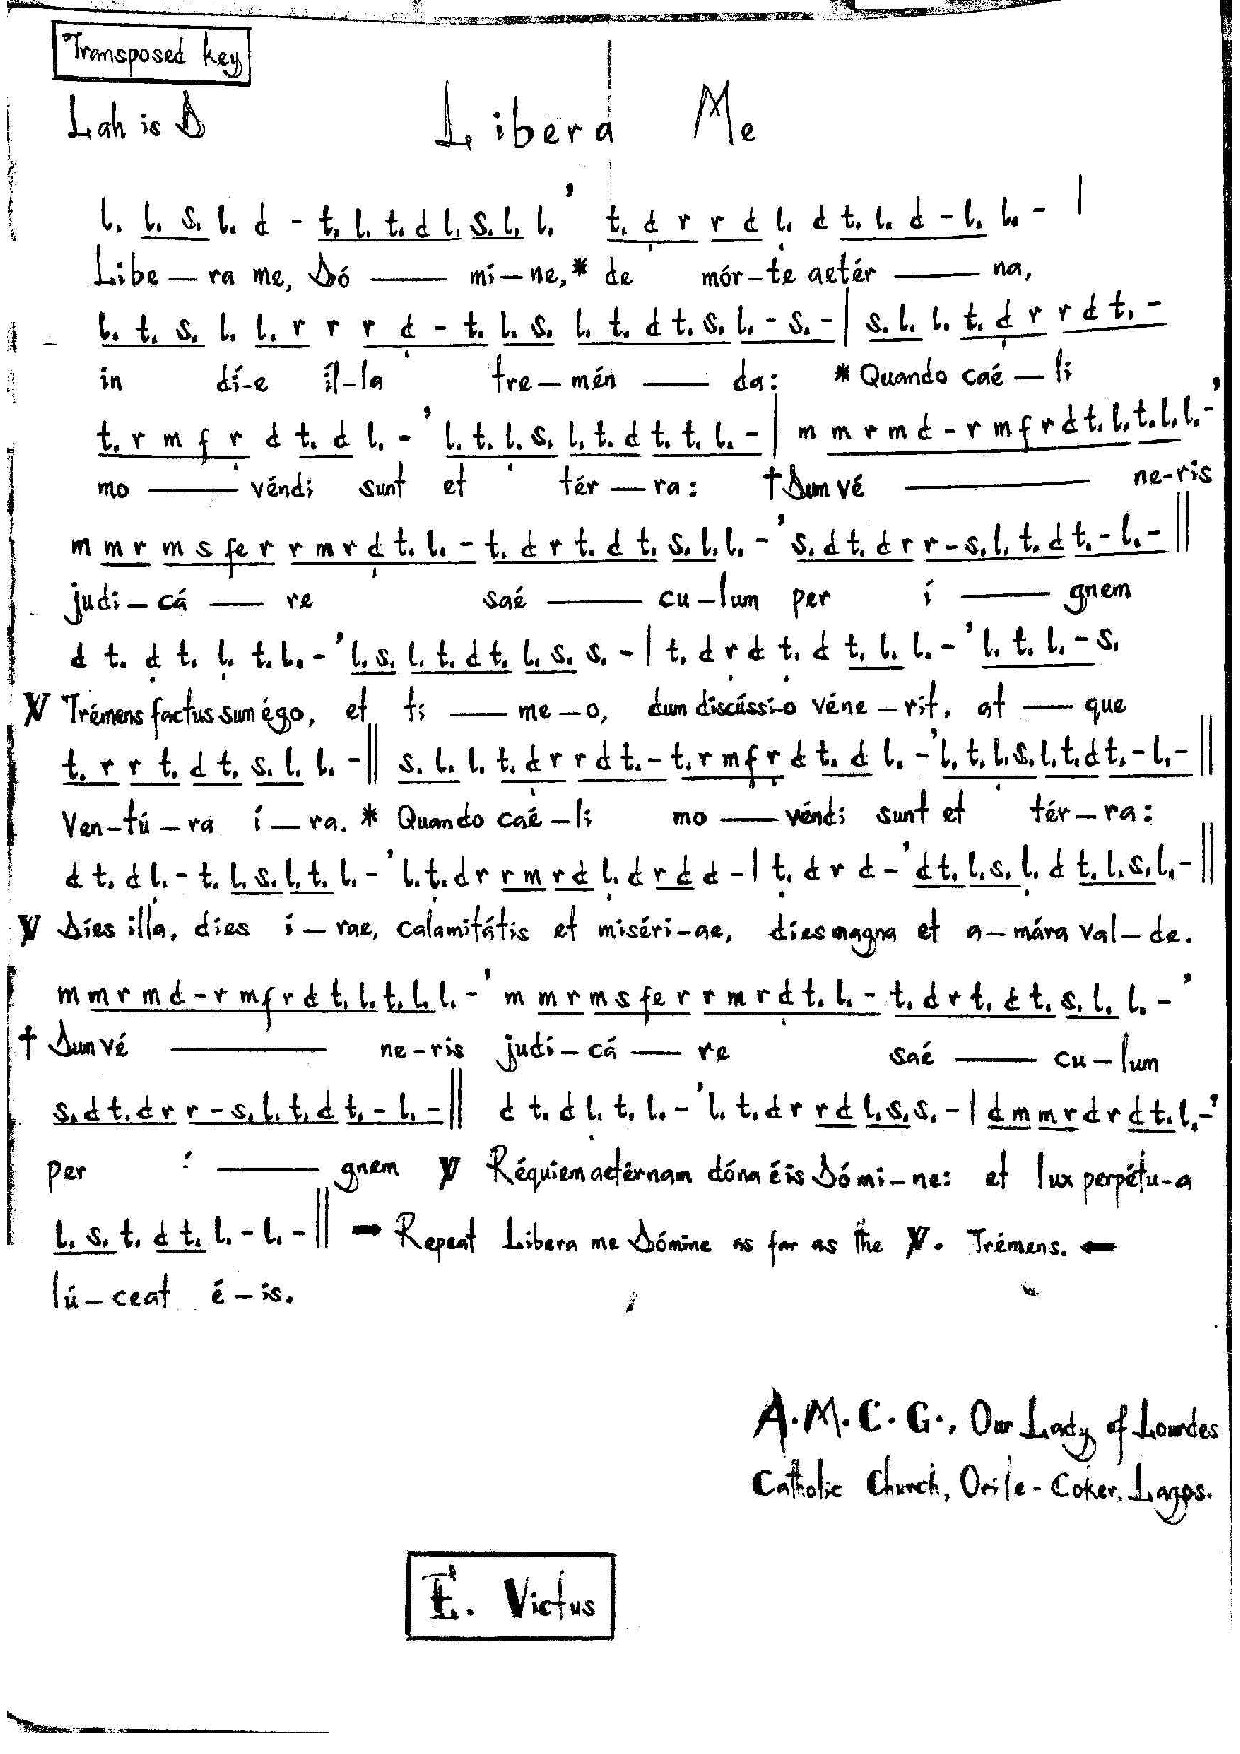 Transposed key
Lah is D
Libera Me
l, l, s, l, d - t, l, t, d l, s, l, l,' t, d r r d l, d t, l, d - l, l, - |
Libe — ra me, Dó —— mi — ne, * de mór – te aetér —— na,
l, t, s, l, l, r r r d - t, l, s, l, t, d t, s, l, - s, - | s, l, l, t, d r r d t, -
in dí – e íl – la tre – mén —— da: * Quando caé – li
t, r m f r d t, d l, - ' l, t, l, s, l, t, d t, t, l, - | m m r m d - r m f r d t, l, t, l, l, - '
mo —— véndi sunt et tér — ra: † Dum vé ——— ne-ris
m m r m s fe r r m r d t, l, - t, d r t, d t, s, l, l, - ' s, d t, d r r - s, l, t, d t, - l, - ||
judi – cá — re saé —— cu – lum per í —— gnem
d t, d t, l, t, l, - ' l, s, l, t, d t, l, s, s, s, - | t, d r d t, d t, l, l, - ' l, t, l, - s,
℣ Trémens factus sum égo, et ti —— me – o, dum discússi-o véne – rit, at — que
t, r r t, d t, s, l, l, - || s, l, l, t, d r r d t, - t, r m f r d t, d l, - ' l, t, l, s, l, t, d t, - l, - ||
Ven – tú – ra í — ra. * Quando caé – li mo —— véndi sunt et tér – ra:
d t, d l, - t, l, s, l, t, l, - ' l, t, d r r m r d l, d r d d - | t, d r d - ' d t, l, s, l, d t, l, s, l, - ||
℣ Díes illa, díes í – rae, calamitátis et miséri-ae, díes magna et a – mára val – de.
m m r m d - r m f r d t, l, t, l, l, - ' m m r m s fe r r m r d t, l, - t, d r t, d t, s, l, l, - '
† Dum vé ——— ne – ris judi – cá — re saé —— cu – lum
s, d t, d r r - s, l, t, d t, - l, - || d t, d l, t, l, - ' l, t, d r r d l, s, s, - | d m m r d r d t, l, - '
per í —— gnem ℣ Réquiem aetérnam dóna éis Dómi – ne: et lux perpétu-a
l, s, t, d t, l, - l, - || → Repeat Libera me Dómine as far as the ℣. Trémens. ←
lú – ceat é – is.
A.M.C.G., Our Lady of Lourdes
Catholic Church, Orile - Coker, Lagos.
E. Victus